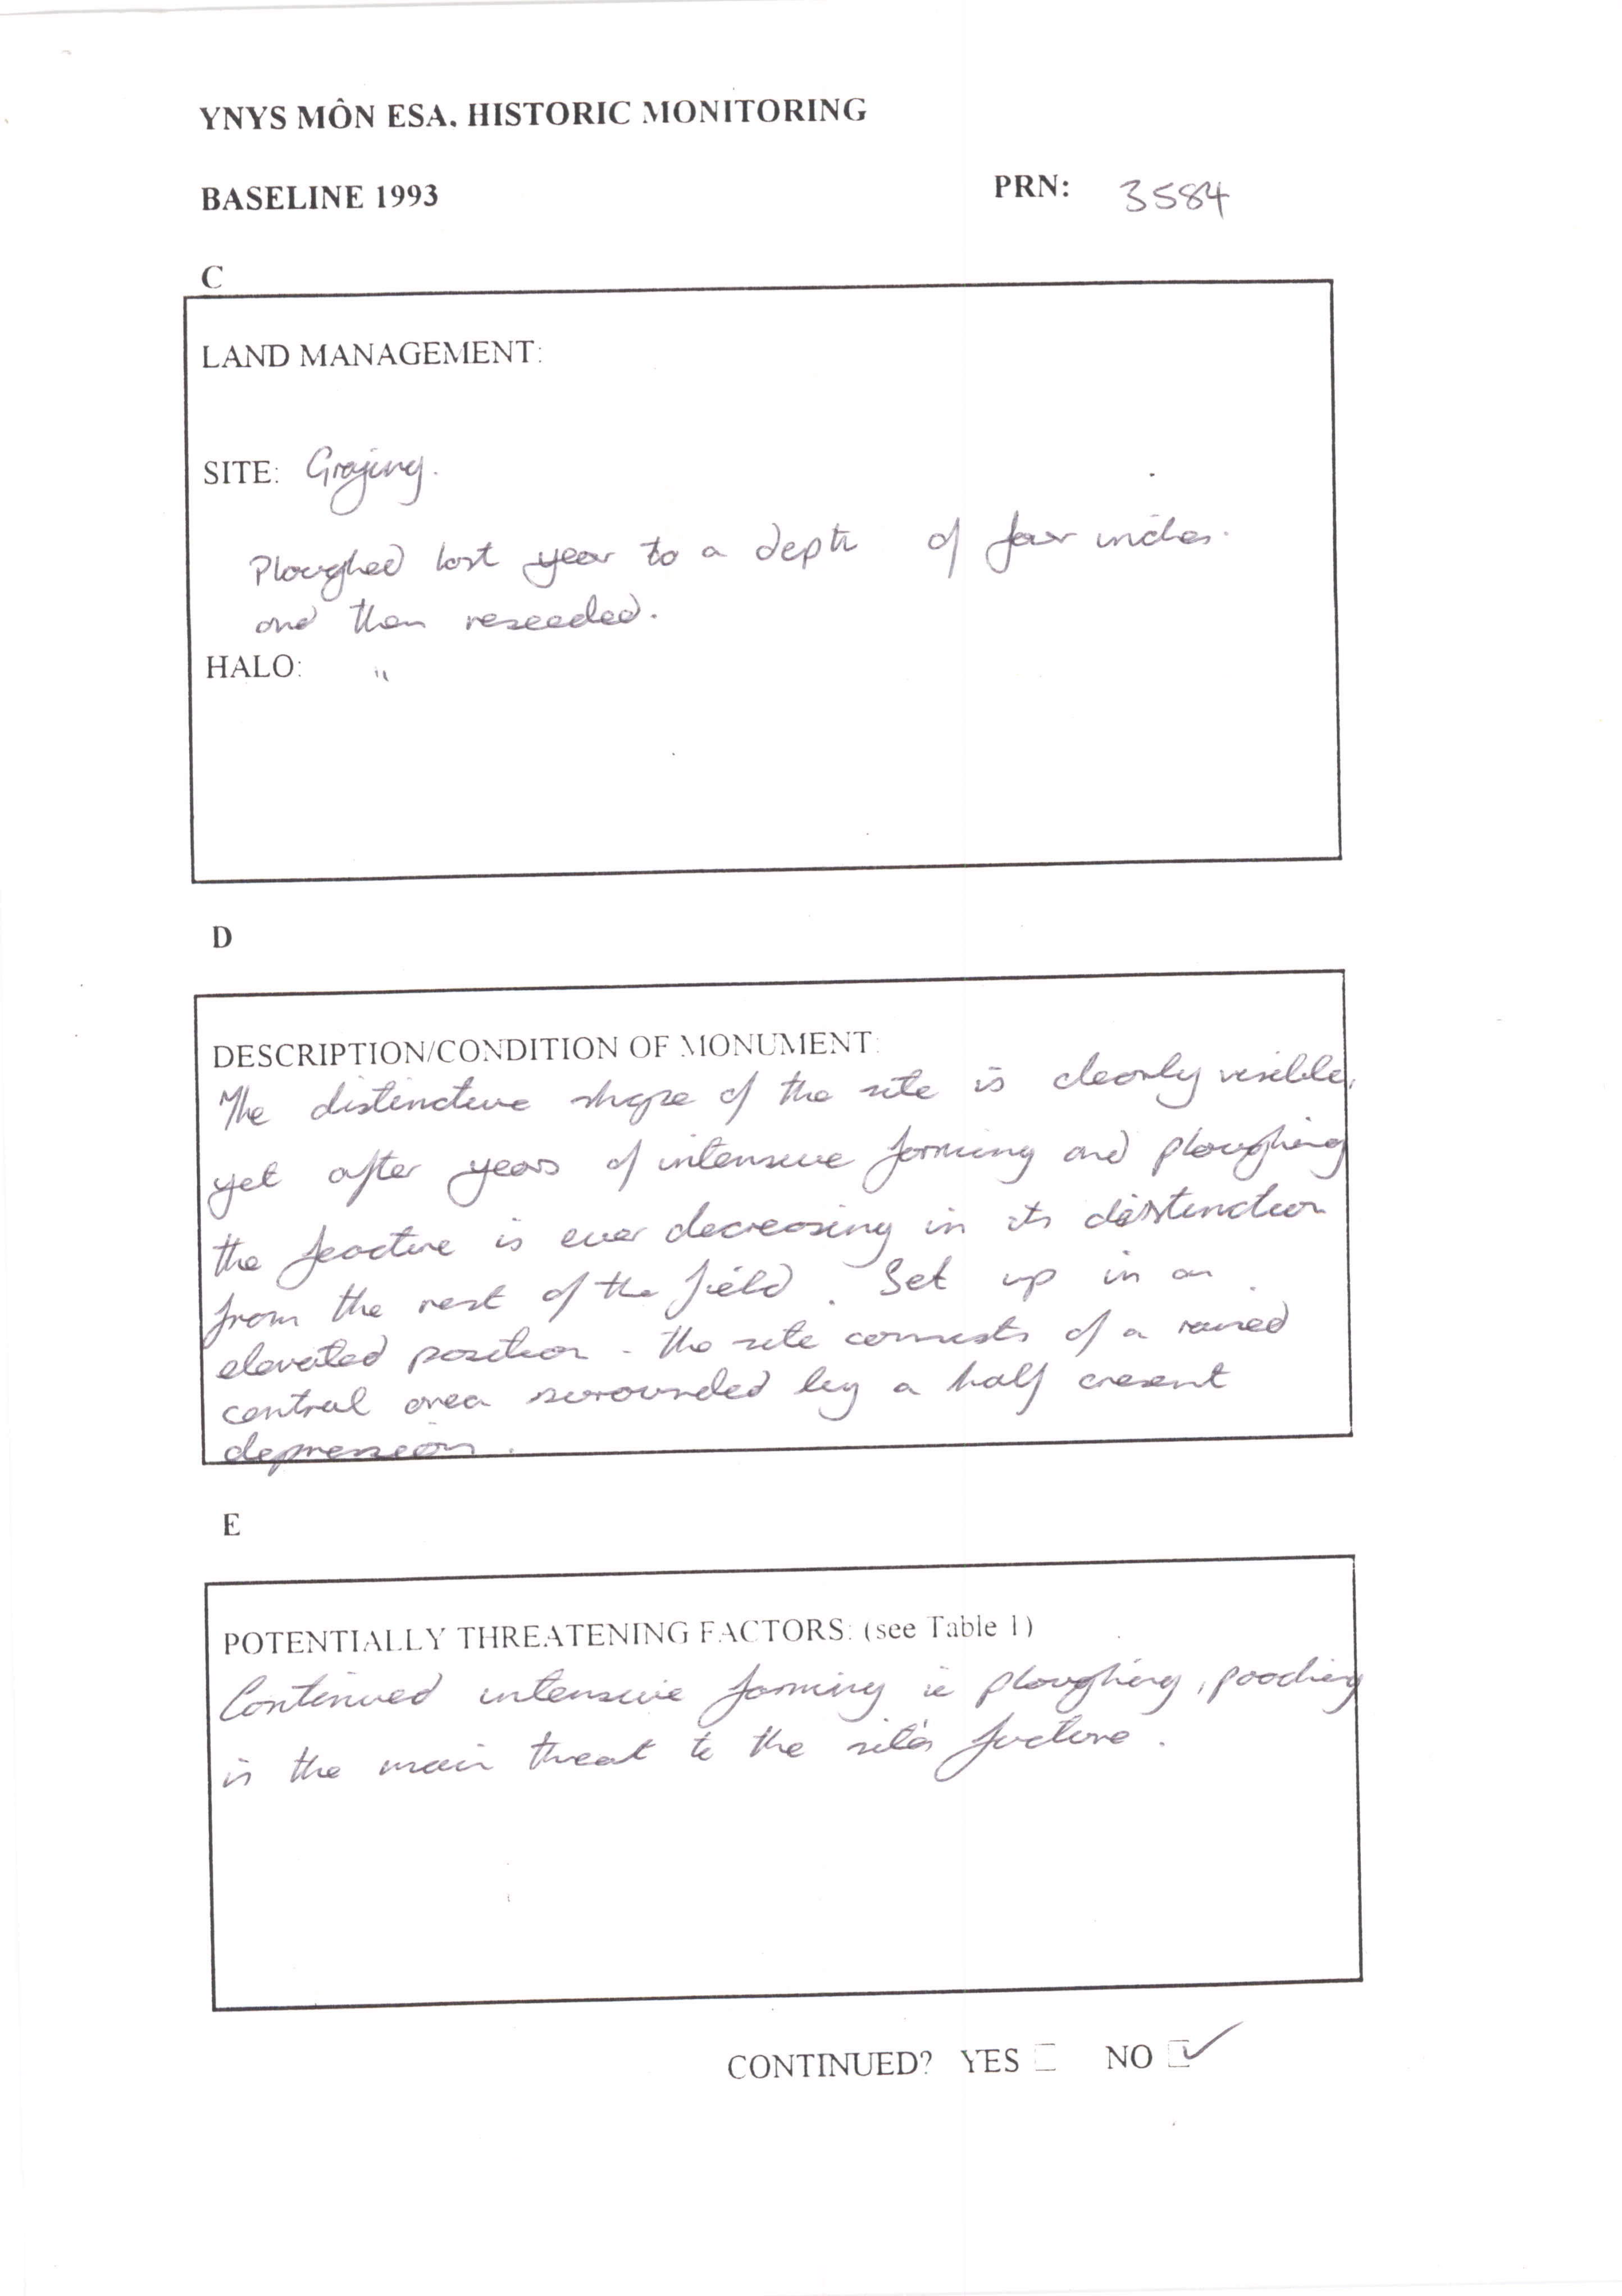 YNYS MÔN ESA. HISTORIC MONITORING
BASELINE 1993 PRN: 3584
C
LAND MANAGEMENT:
SITE: Grazing.
Ploughed last year to a depth of four inches.
and then reseeded.
HALO: "
D
DESCRIPTION/CONDITION OF MONUMENT:
The distinctive shape of the site is clearly visible,
yet after years of intensive farming and ploughing
the feature is ever decreasing in its distinction
from the rest of the field. Set up in an
elevated position - the site consists of a raised
central area surrounded by a half cresent
depression.
E
POTENTIALLY THREATENING FACTORS: (see Table 1)
Continued intensive farming ie ploughing, poaching
is the main threat to the site's future.
CONTINUED? YES NO ✓